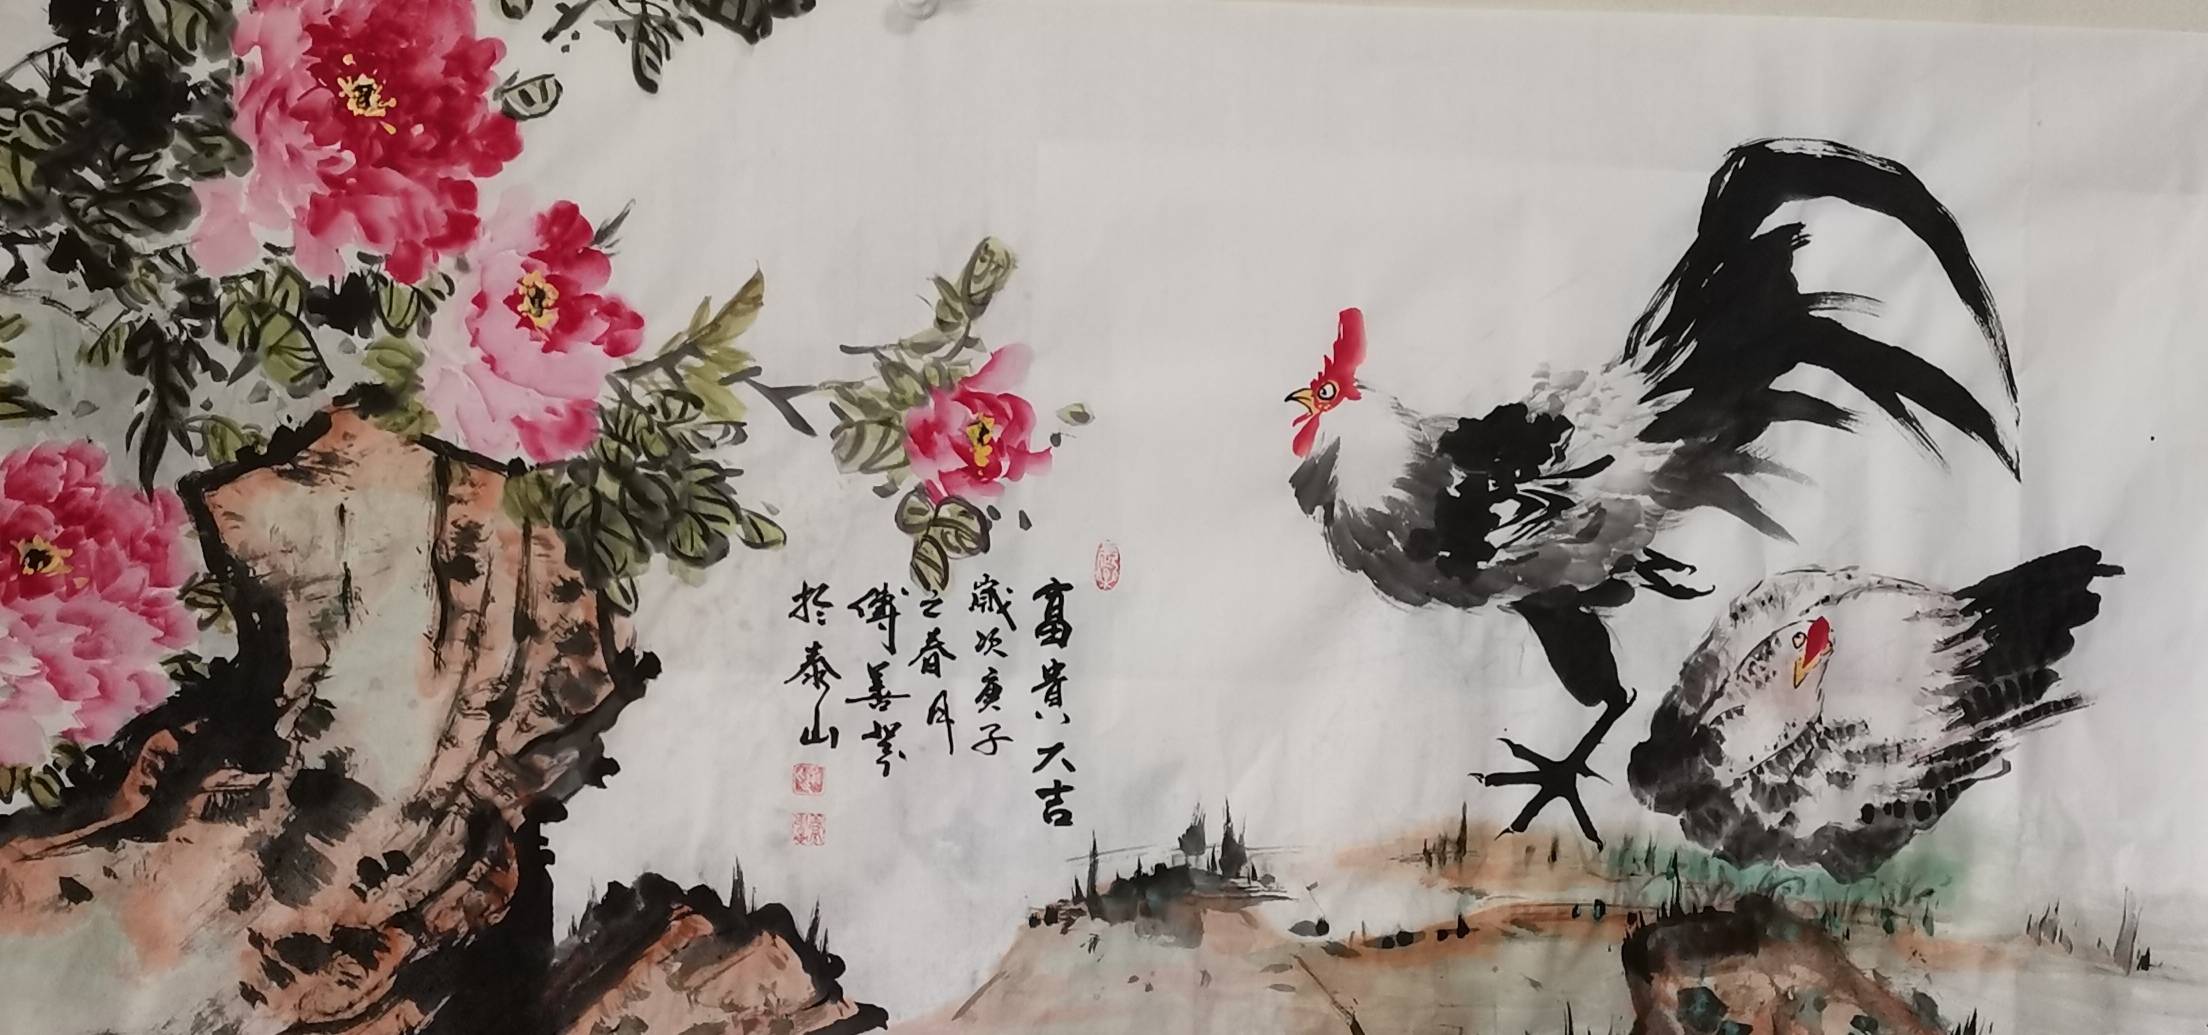 富贵大吉
歲次庚子
之春月
傅善
於泰山